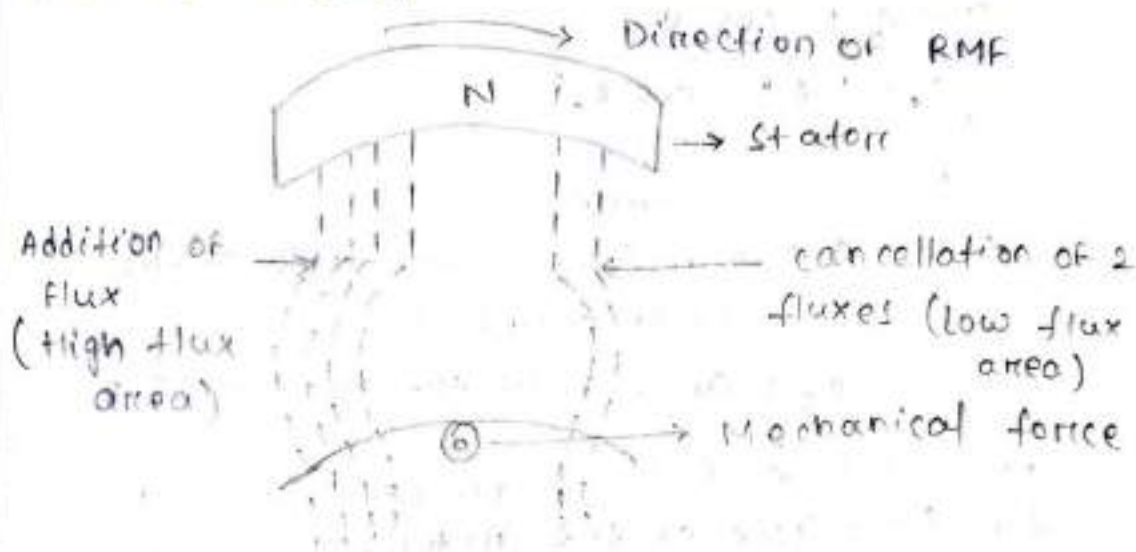 Direction of RMF
N
→ Statorr
Addition of
flux
(High flux
area)
cancellation of 2
fluxes (Low flux
area)
Mechanical force